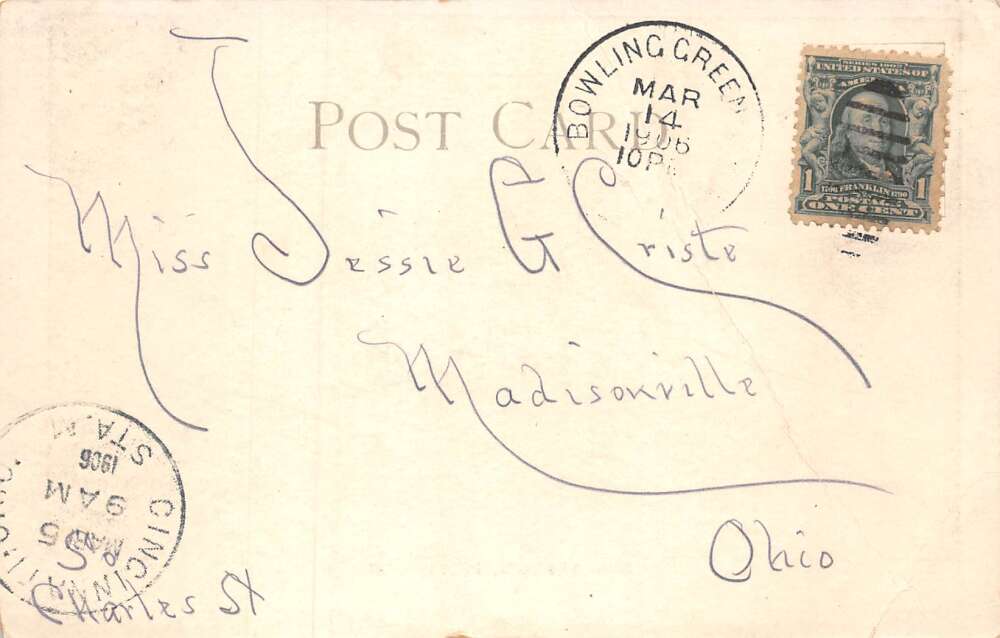 POST CARD
BOWLING GREEN
MAR
14
1906
10P
SERIES 1902
UNITED STATES OF
AMERICA
1 1706 FRANKLIN 1790 1
POSTAGE
ONE CENT
Miss Jessie G Criste
Madisonville
Ohio
S Charles St
CINCINNATI, OHIO.
STA. M
MAR 15
9 AM
1906